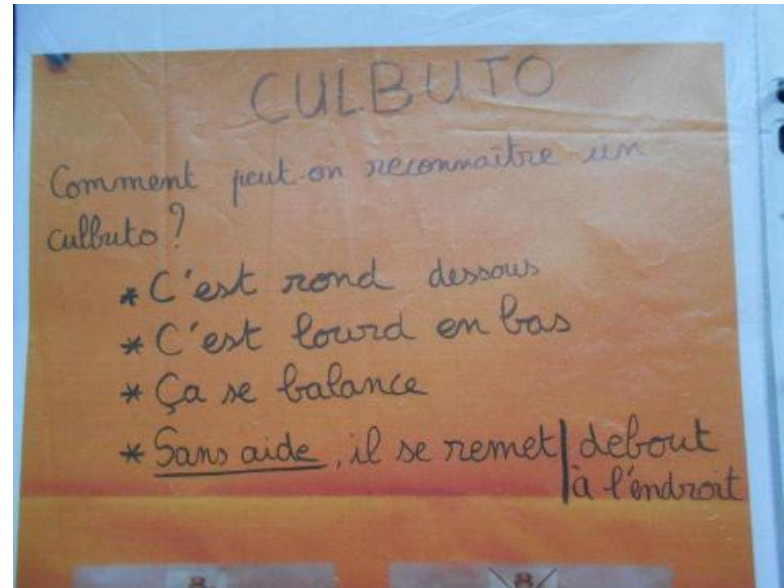 CULBUTO
Comment peut on reconnaître un
culbuto ?
* C'est rond dessous
* C'est lourd en bas
* Ça se balance
* Sans aide, il se remet | debout
à l'endroit